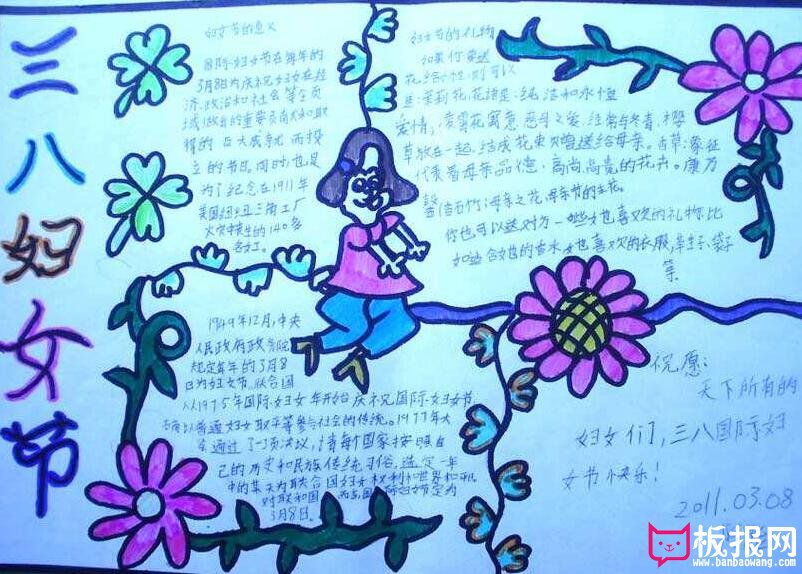 三八妇女节
妇女节的意义
国际妇女节在每年的
3月8日为庆祝妇女在经
济、政治和社会等领
域做出的重要贡献和取
得的巨大成就而设
立的节日。同时,也是
为了纪念在1911年
美国纽约三角工厂
火灾中丧生的140多
名女工。
妇女节的礼物
如果你要送
花给女性,则可以
是:茉莉花,花语是:纯洁和永恒
爱情,
草放在一起,结成花束火赠送给母亲。
代表着母亲品德,高尚、高贵的花卉。康乃
馨(伯石竹):母亲之花,母亲节的主花。
你也可以送对方一些她也喜欢的礼物,比
如适合她的香水,她也喜欢的衣服,鞋子、袋子
等
1949年12月,中央
人民政府政务院
规定每年的3月8
日为妇女节。联合国
从1975年国际妇女年开始庆祝国际妇女节,
普通妇女取平等参与社会的传统。1977年大
会通过了一项决议,请每个国家按照自
己的历史和民族传统习俗,选定一年
中的某天为联合国妇女权利和世界和平
3月8日。
祝愿:
天下所有的
妇女们,三八国际妇
女节快乐!
2011.03.08
板报网
www.banbaowang.com